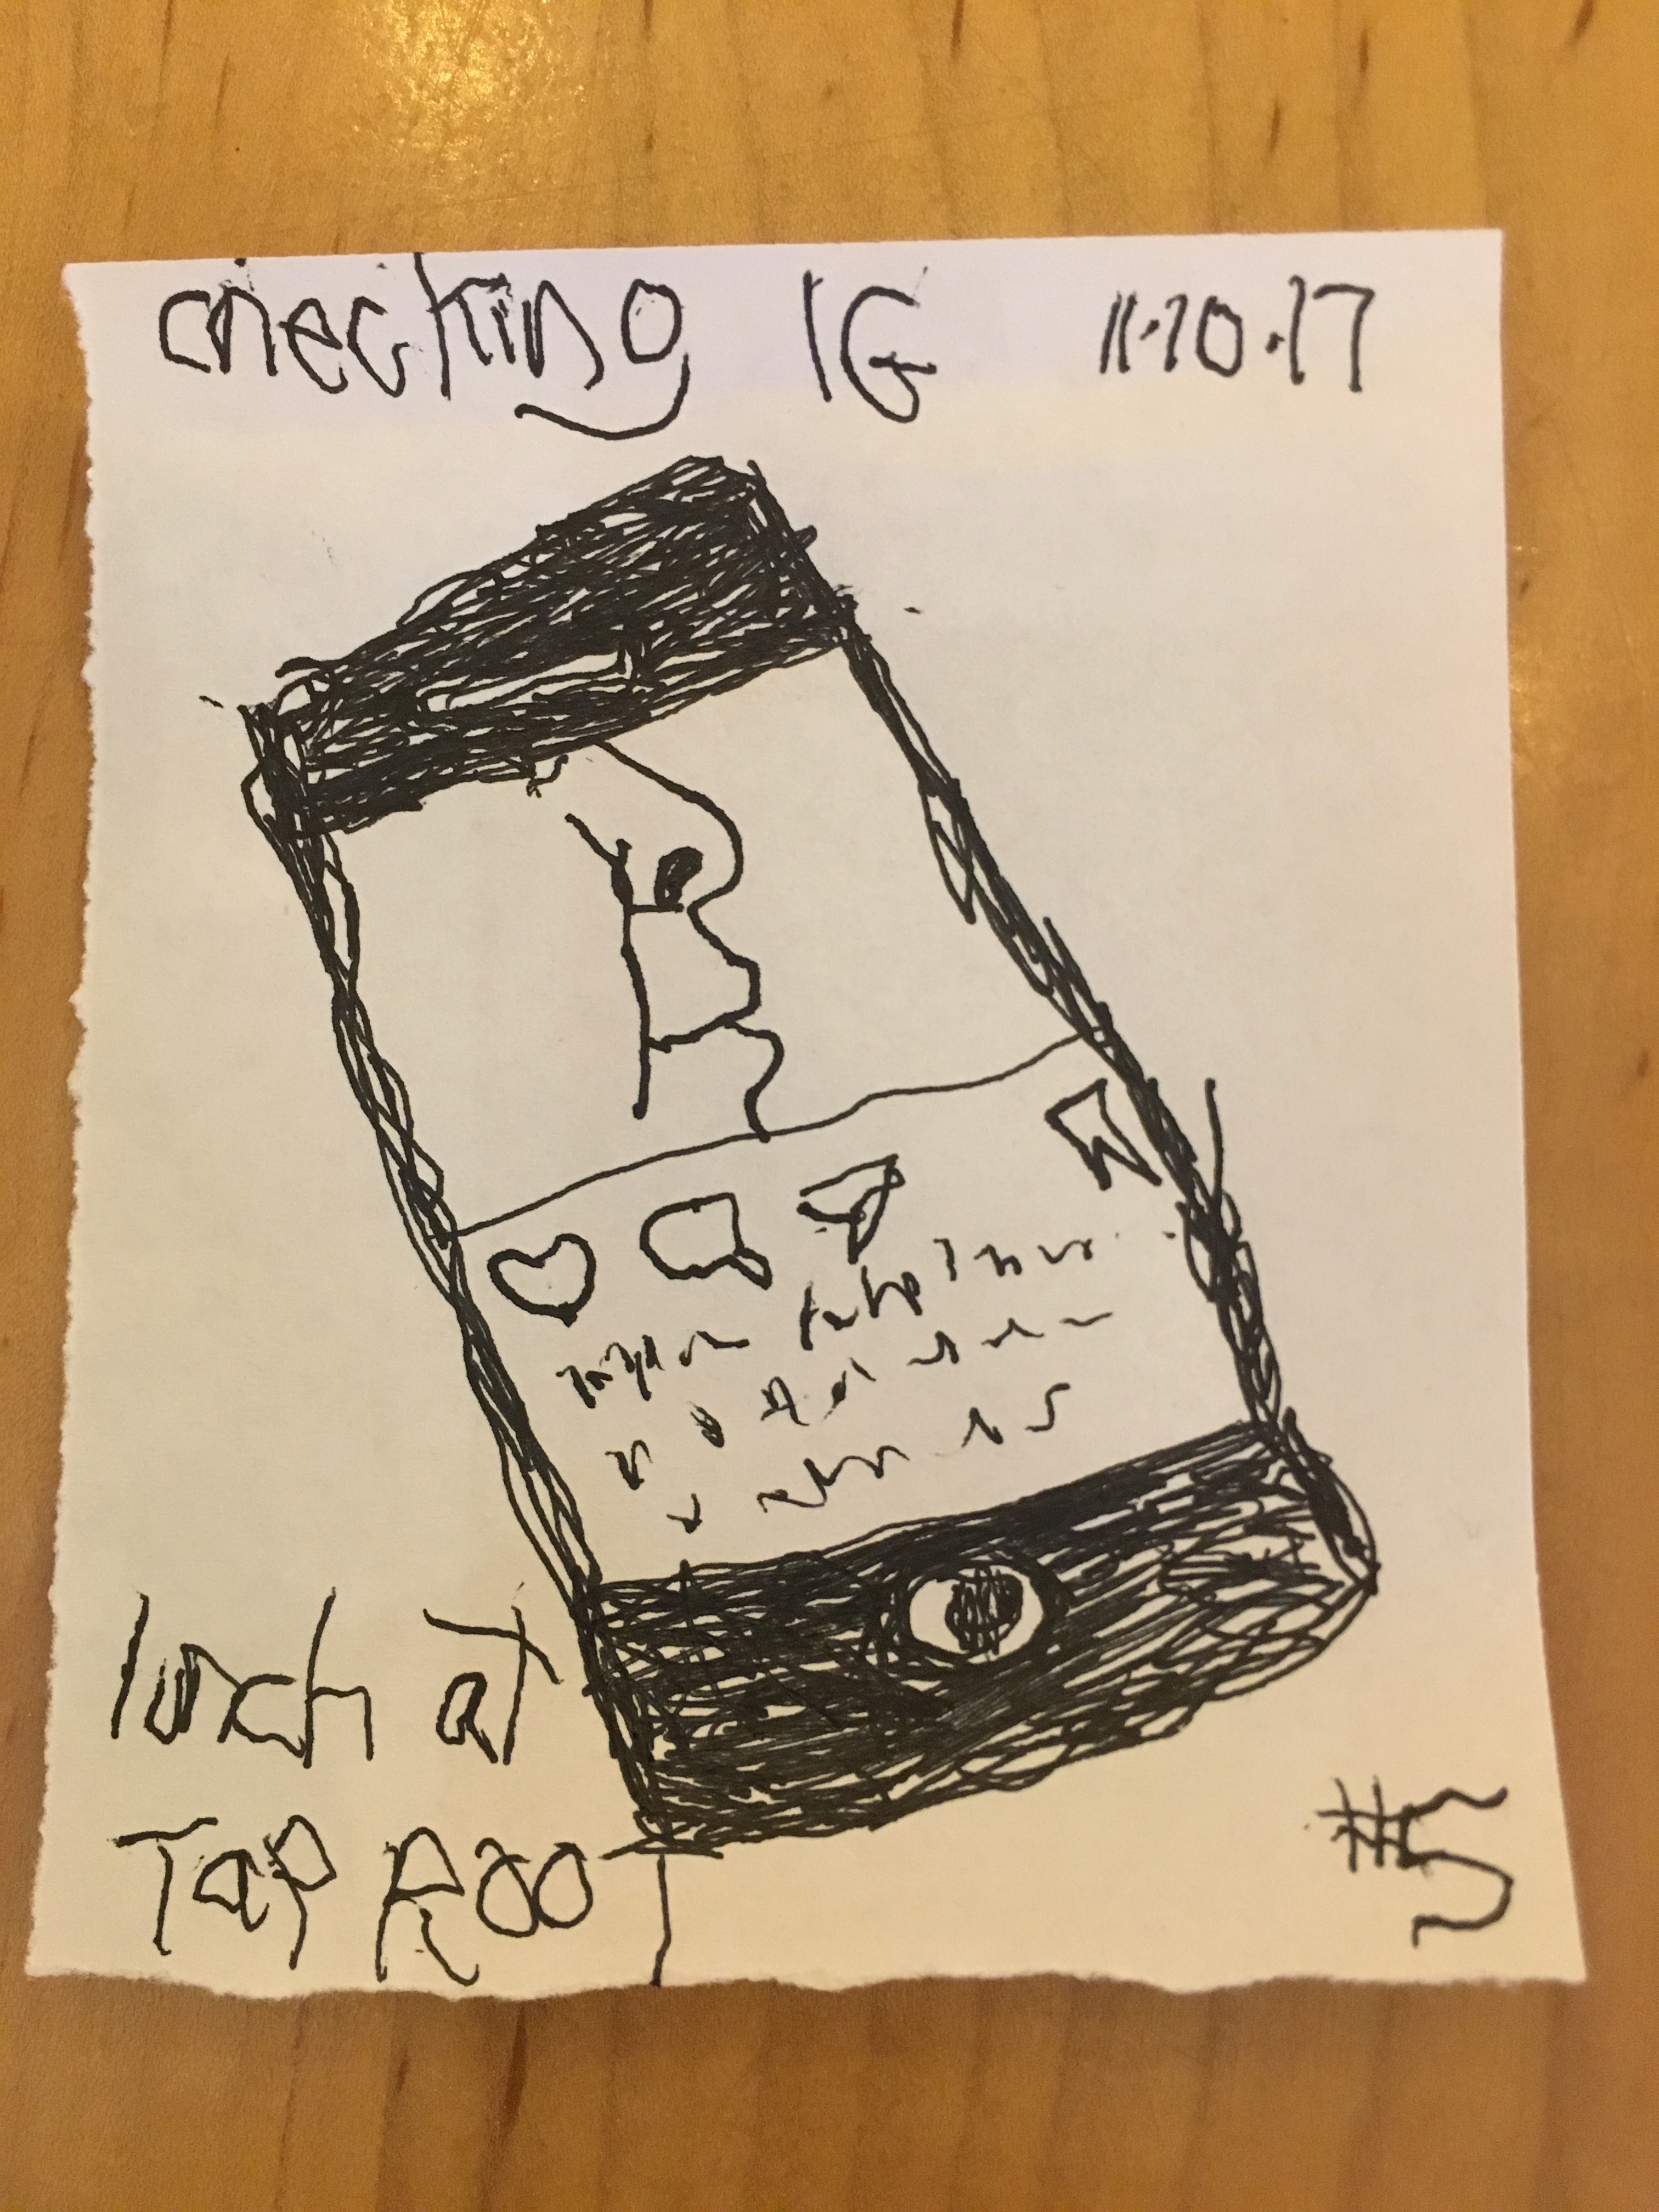 checking IG 11.10.17
lunch at
Tap Root
#5